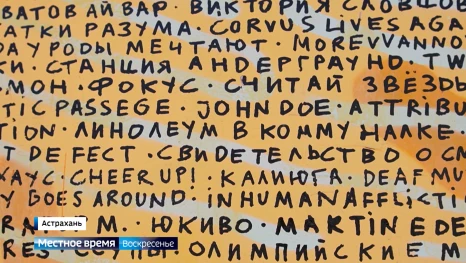 ВАТОВ АЙВАР · ВИКТОРИЯ СЛОВЦОВ
АТКИ РАЗУМА · CORVUS LIVES AGA
РА УРОДЫ МЕЧТАЮТ · MOREVVANNO
КИ · СТАНЦИЯ АНДЕРГРАУНД · TW
МОН · ФОКУС · СЧИТАЙ ЗВЁЗДЫ
TIC PASSEGE · JOHN DOE · ATTRIBU
TION · ЛИНОЛЕУМ В КОММУНАЛКЕ ·
T DEFECT · СВИДЕТЕЛЬСТВО О СМ
ХАУС · CHEER UP! · КАЛИЮГА · DEAF MU
Y GOES AROUND · INHUMAN AFFLICTI
ЮКИВО · MARTIN EDE
ОЛИМПИЙСКИЕ М
Астрахань
Местное время Воскресенье